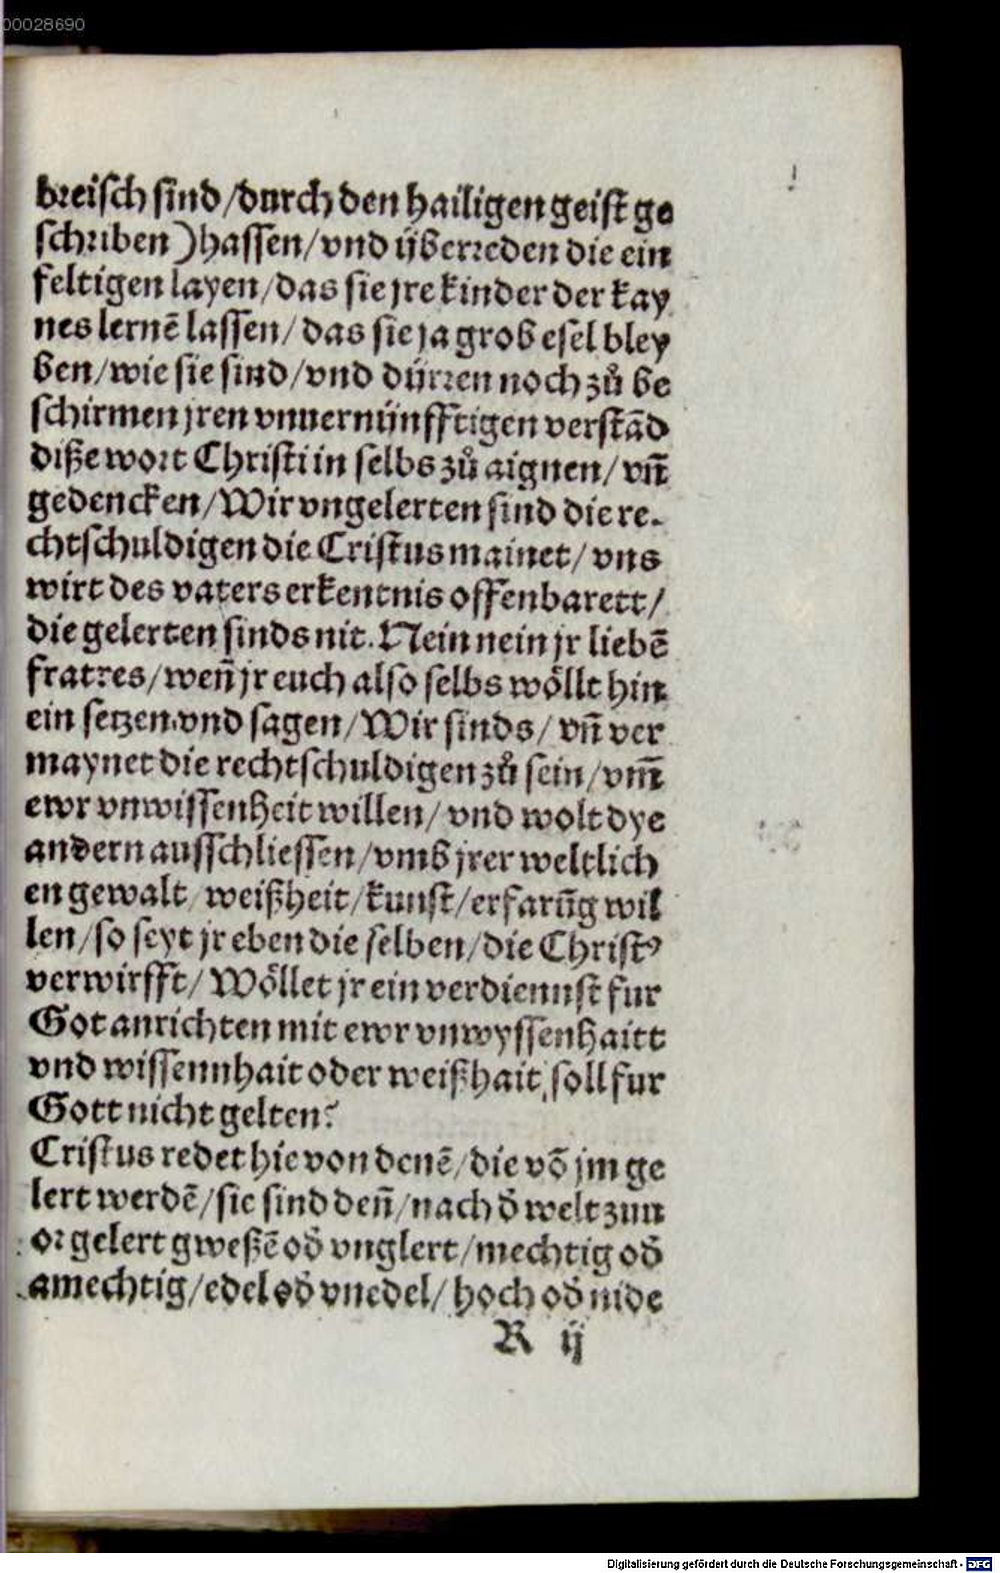 00028690
breisch sind /durch den hailigen geist ge
schriben )hassen/vnd ÿberreden die ein
feltigen layen/das sie jre kinder der kay
nes lernē lassen/ das sie ja grob esel bley
ben/wie sie sind/vnd dürren noch zů be
schirmen jren vnuernünfftigen verstād
diße wort Christi in selbs zů aignen/ vn̄
gedencken/Wir vngelerten sind die re-
chtschuldigen die Cristus mainet/ vns
wirt des vaters erkentnis offenbarett/
die gelerten sinds nit. Nein nein jr liebē
fratres/wen̄ jr euch also selbs wöllt hin
ein setzen vnd sagen/Wir sinds/ vn̄ ver
maynet die rechtschuldigen zů sein/vm̄
ewr vnwissenheit willen/ vnd wolt dye
andern ausschliessen/vmb jrer weltlich
en gewalt/weißheit/kunst/erfarūg wil
len/so seyt jr eben die selben/die Christꝰ
verwirfft/ Wöllet jr ein verdiennst fur
Got anrichten mit ewr vnwyssenhaitt
vnd wissennhait oder weißhait, soll fur
Gott nicht gelten?
Cristus redet hie von denē/die vō jm ge
lert werdē/sie sind den̄/nach d̄ welt zuu
or gelert gweßē od̄ vnglert/mechtig od̄
amechtig/edel od̄ vnedel/ hoch od̄ nide
R ij
Digitalisierung gefördert durch die Deutsche Forschungsgemeinschaft - DFG